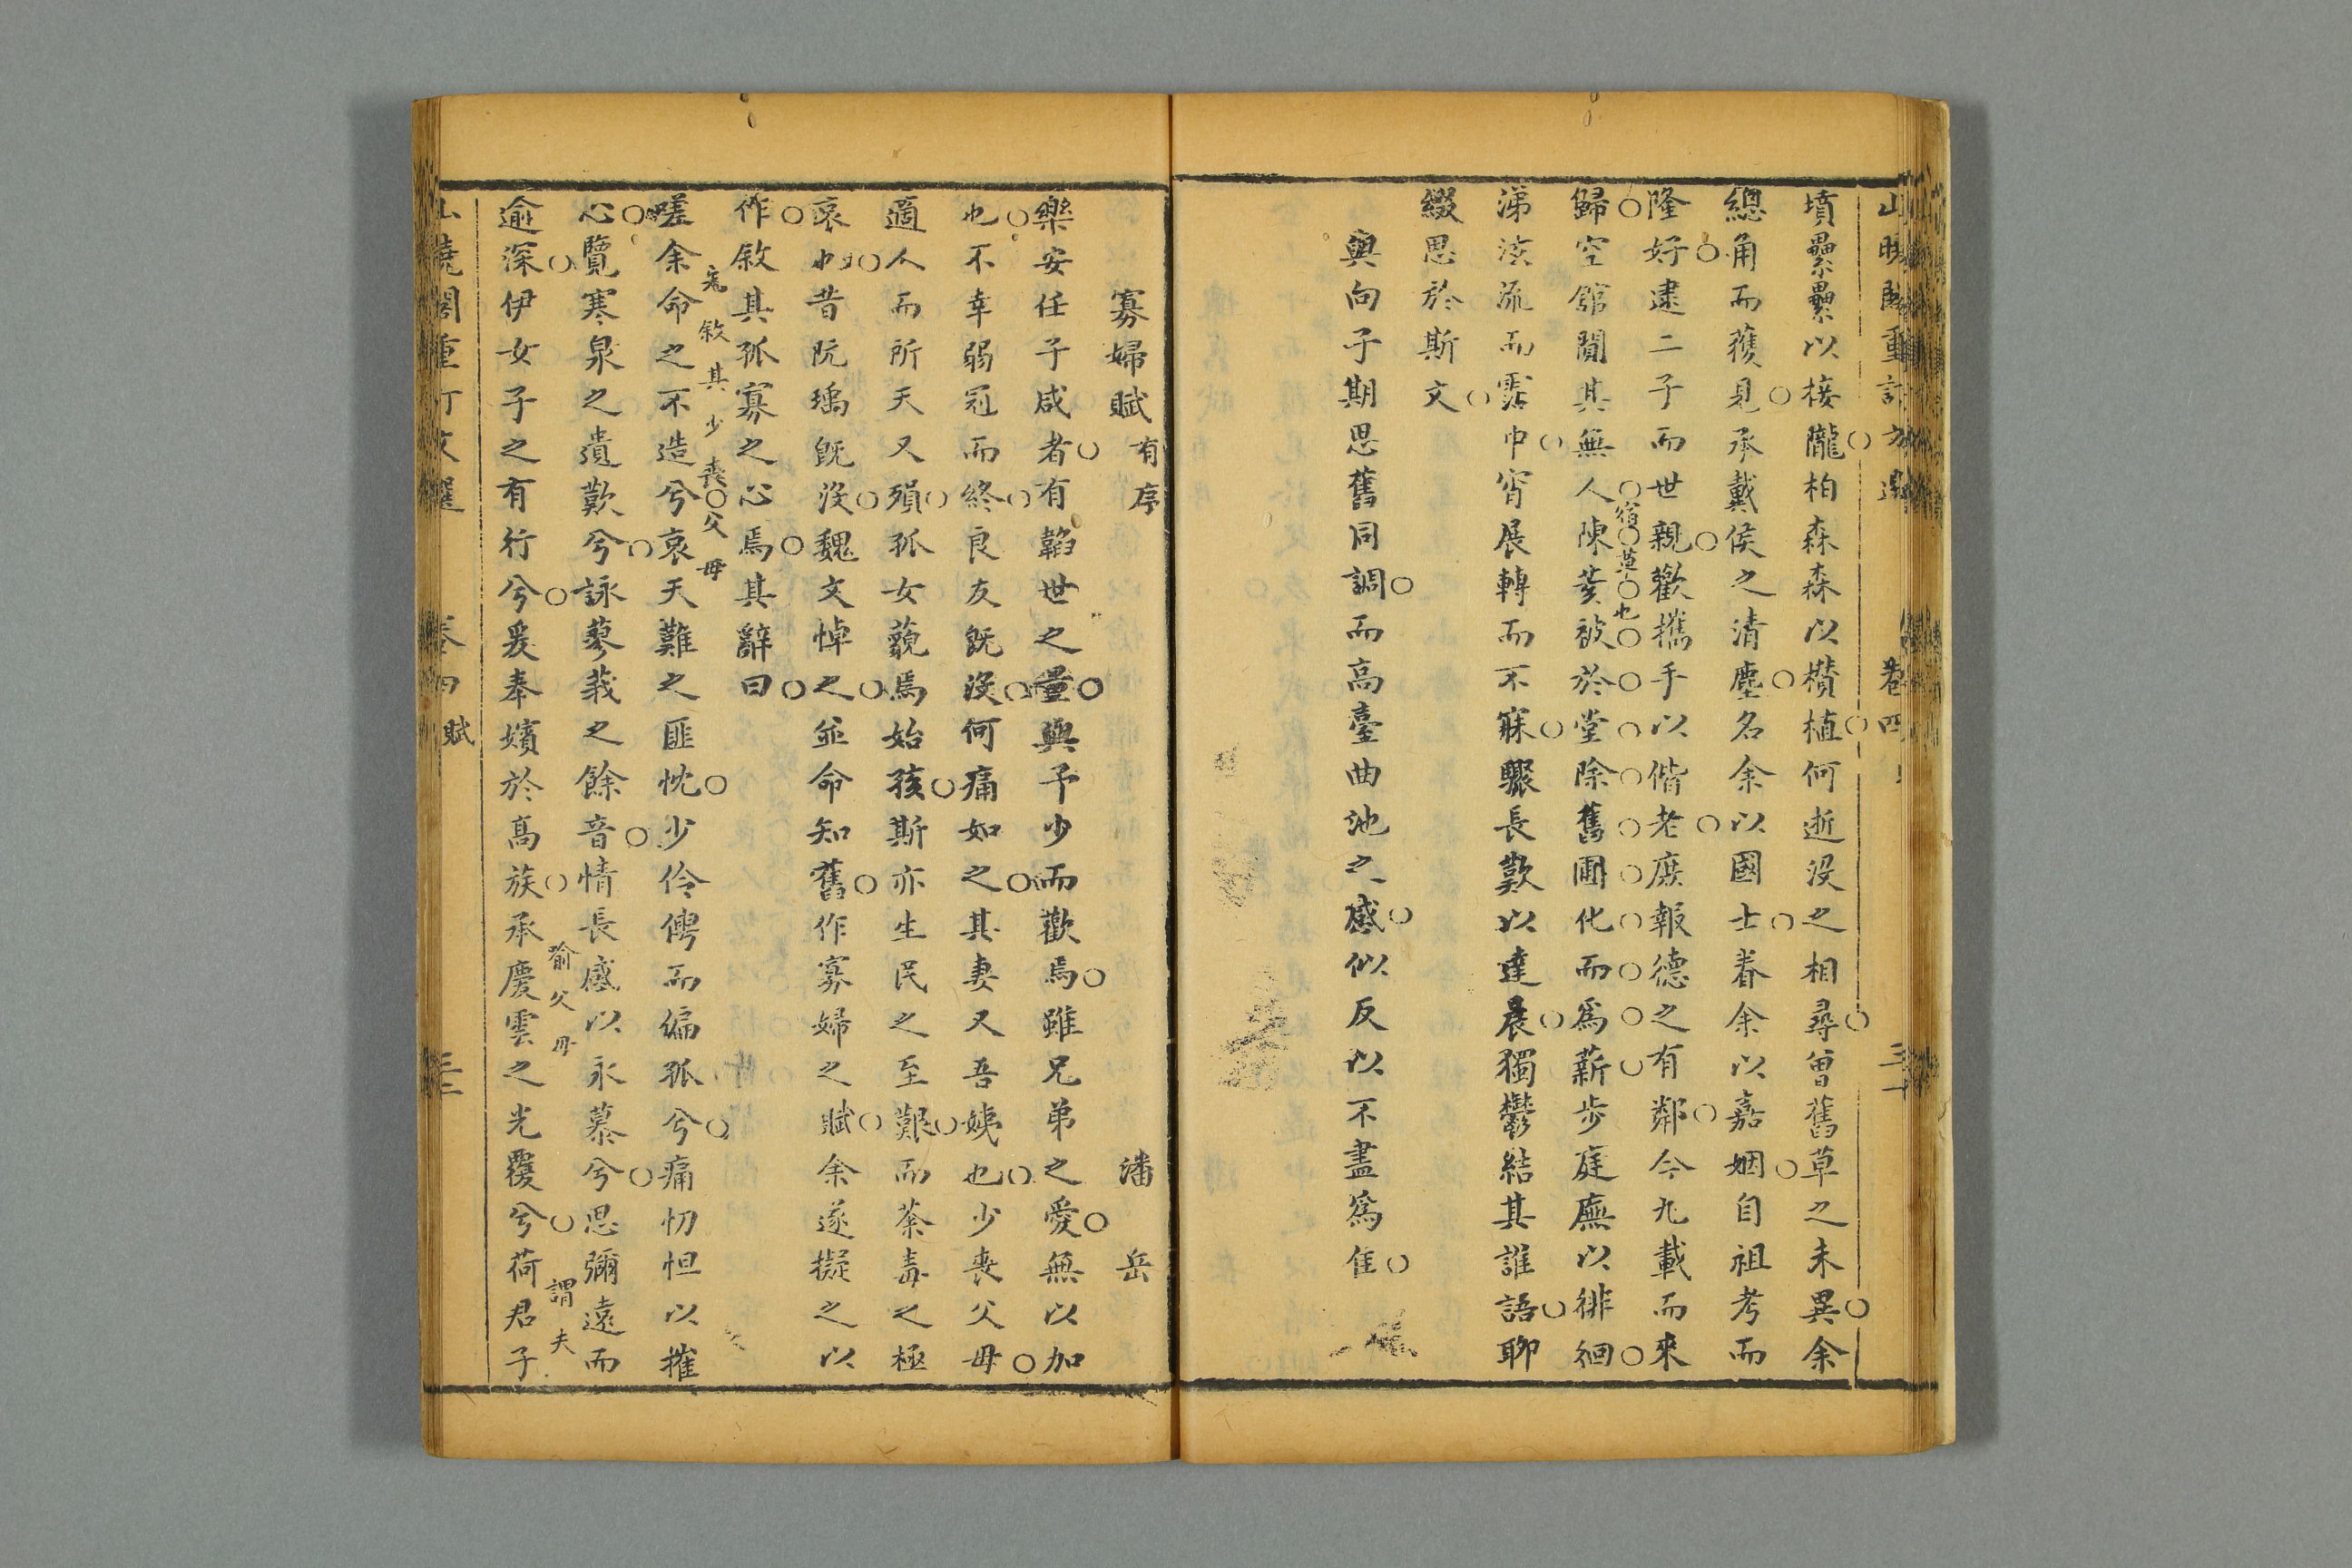 山曉閣重訂文選 卷四 三十一
墳壘壘以接隴柏森森以欑植何逝没之相尋曾舊草之未異余
總角而獲見承戴侯之清塵名余以國士眷余以嘉姻自祖考而
隆好逮二子而世親歡攜手以偕老庶報德之有鄰今九載而來
宿草也
歸空館闃其無人陳荄被於堂除舊圃化而爲薪步庭廡以徘徊
涕泫流而霑巾宵展轉而不寐驟長歎以達晨獨鬱結其誰語聊
綴思於斯文
與向子期思舊同調而高臺曲池之感似反以不盡爲佳
寡婦賦有序 潘岳
樂安任子咸者有韜世之量與予少而歡焉雖兄弟之愛無以加
也不幸弱冠而終良友既没何痛如之其妻又吾姨也少喪父母
適人而所天又殞孤女藐焉始孩斯亦生民之至艱而荼毒之極
哀也昔阮瑀既没魏文悼之並命知舊作寡婦之賦余遂擬之以
作敘其孤寡之心焉其辭曰
先敘其少喪父母
嗟余命之不造兮哀天難之匪忱少伶俜而偏孤兮痛忉怛以摧
心覽寒泉之遺歎兮詠蓼莪之餘音情長慼以永慕兮思彌遠而
喻父母 謂夫
逾深伊女子之有行兮爰奉嬪於高族承慶雲之光覆兮荷君子
山曉閣重訂文選 卷四賦 三十二